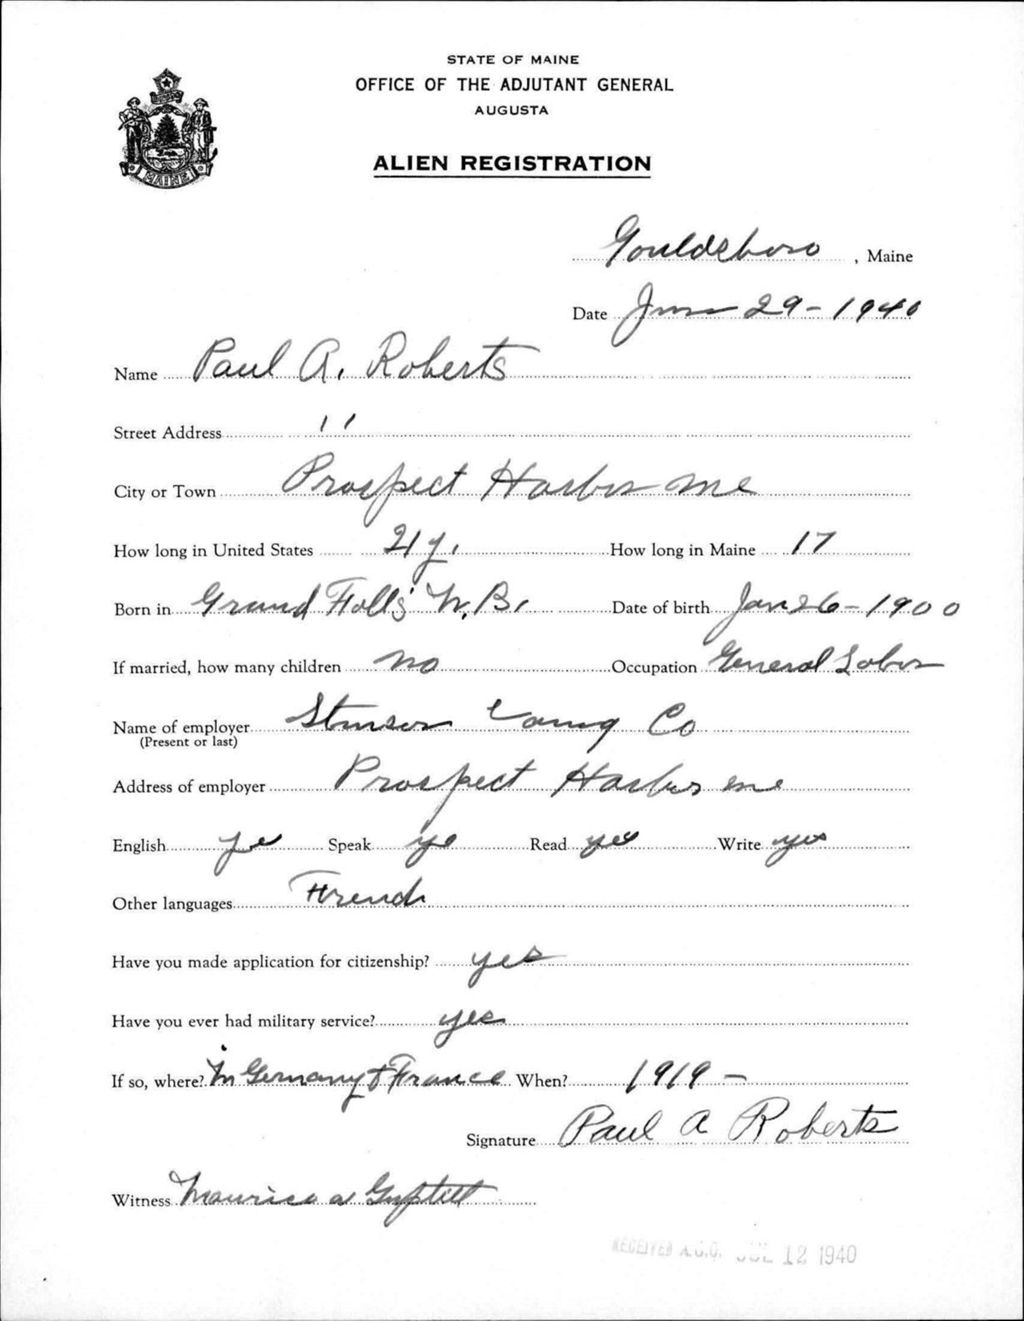 STATE OF MAINE
OFFICE OF THE ADJUTANT GENERAL
AUGUSTA
ALIEN REGISTRATION
MAINE
Gouldsboro, Maine
Date June 29-1940
Name Paul A. Roberts
Street Address 11
City or Town Prospect Harbor Me
How long in United States 21 y. How long in Maine 17
Born in Grand Falls N.B. Date of birth Jan 26-1900
If married, how many children no Occupation General Labor
Name of employer Stinson Caning Co
(Present or last)
Address of employer Prospect Harbor Me
English yes Speak ye Read yes Write yes
Other languages French
Have you made application for citizenship? yes
Have you ever had military service? yes
If so, where? In Germany & France When? 1919-
Signature Paul A Roberts
Witness Maurice A Guptill
RECEIVED A.G.O. JUL 12 1940